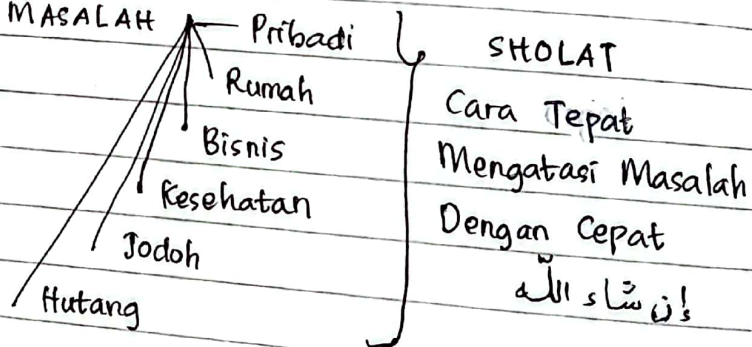 MASALAH
Pribadi
Rumah
Bisnis
Kesehatan
Jodoh
Hutang
SHOLAT
Cara Tepat
Mengatasi Masalah
Dengan Cepat
إن شاء اللّه